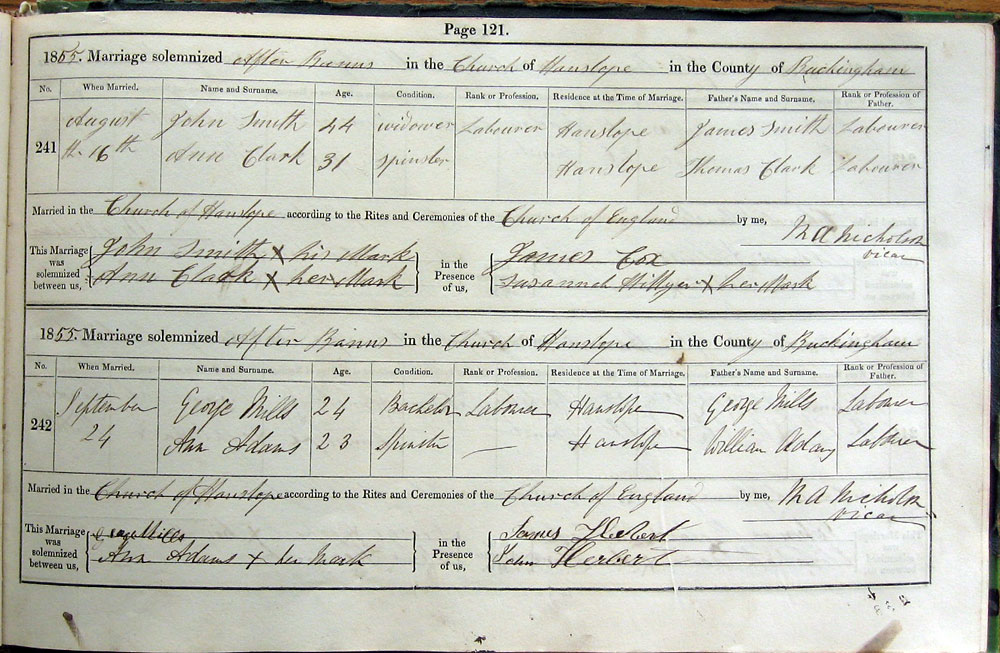 Page 121.
1855. Marriage solemnized After Banns in the Church of Hanslope in the County of Buckingham
No. When Married. Name and Surname. Age. Condition. Rank or Profession. Residence at the Time of Marriage. Father's Name and Surname. Rank or Profession of Father.
August John Smith 44 widower Labourer Hanslope James Smith Labourer
241 th 16th Ann Clark 31 spinster Hanslope Thomas Clark Labourer
Married in the Church of Hanslope according to the Rites and Ceremonies of the Church of England by me, M A Nicholson vicar
This Marriage was solemnized between us, John Smith X his Mark in the Presence of us, James Cox
Ann Clark X her Mark Susannah Hillyer X her Mark
1855. Marriage solemnized After Banns in the Church of Hanslope in the County of Buckingham
No. When Married. Name and Surname. Age. Condition. Rank or Profession. Residence at the Time of Marriage. Father's Name and Surname. Rank or Profession of Father.
September George Mills 24 Bachelor Labourer Hanslope George Mills Labourer
242 24 Ann Adams 23 Spinster — Hanslope William Adams Labourer
Married in the Church of Hanslope according to the Rites and Ceremonies of the Church of England by me, M A Nicholson vicar
This Marriage was solemnized between us, Mills in the Presence of us, James Herbert
Ann Adams X her Mark John Herbert